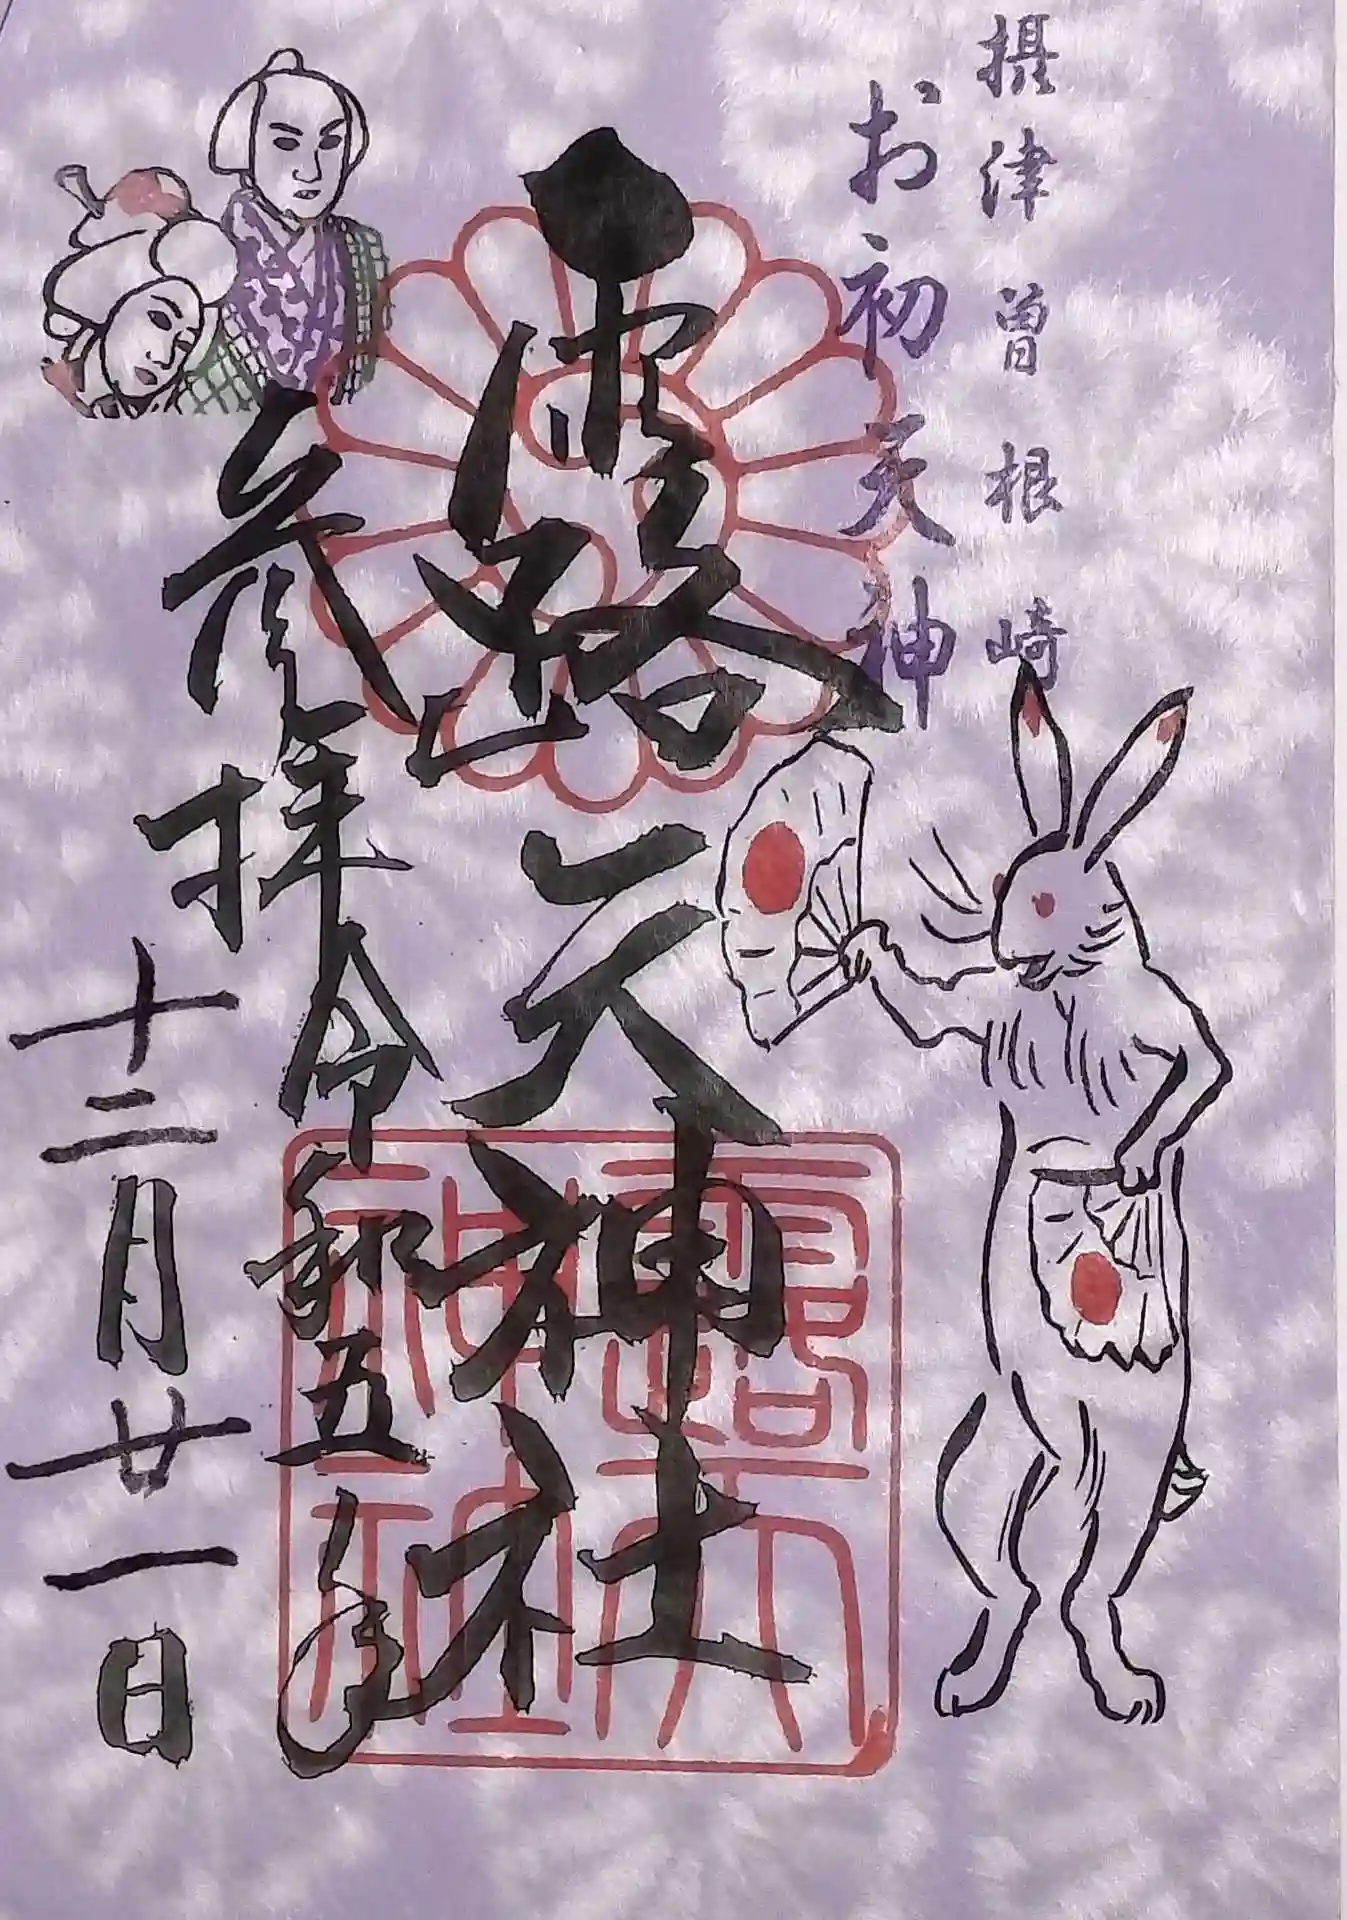 摂津曽根崎
お初天神
露天神社
参拝
令和五年
十二月廿一日
露天
神社